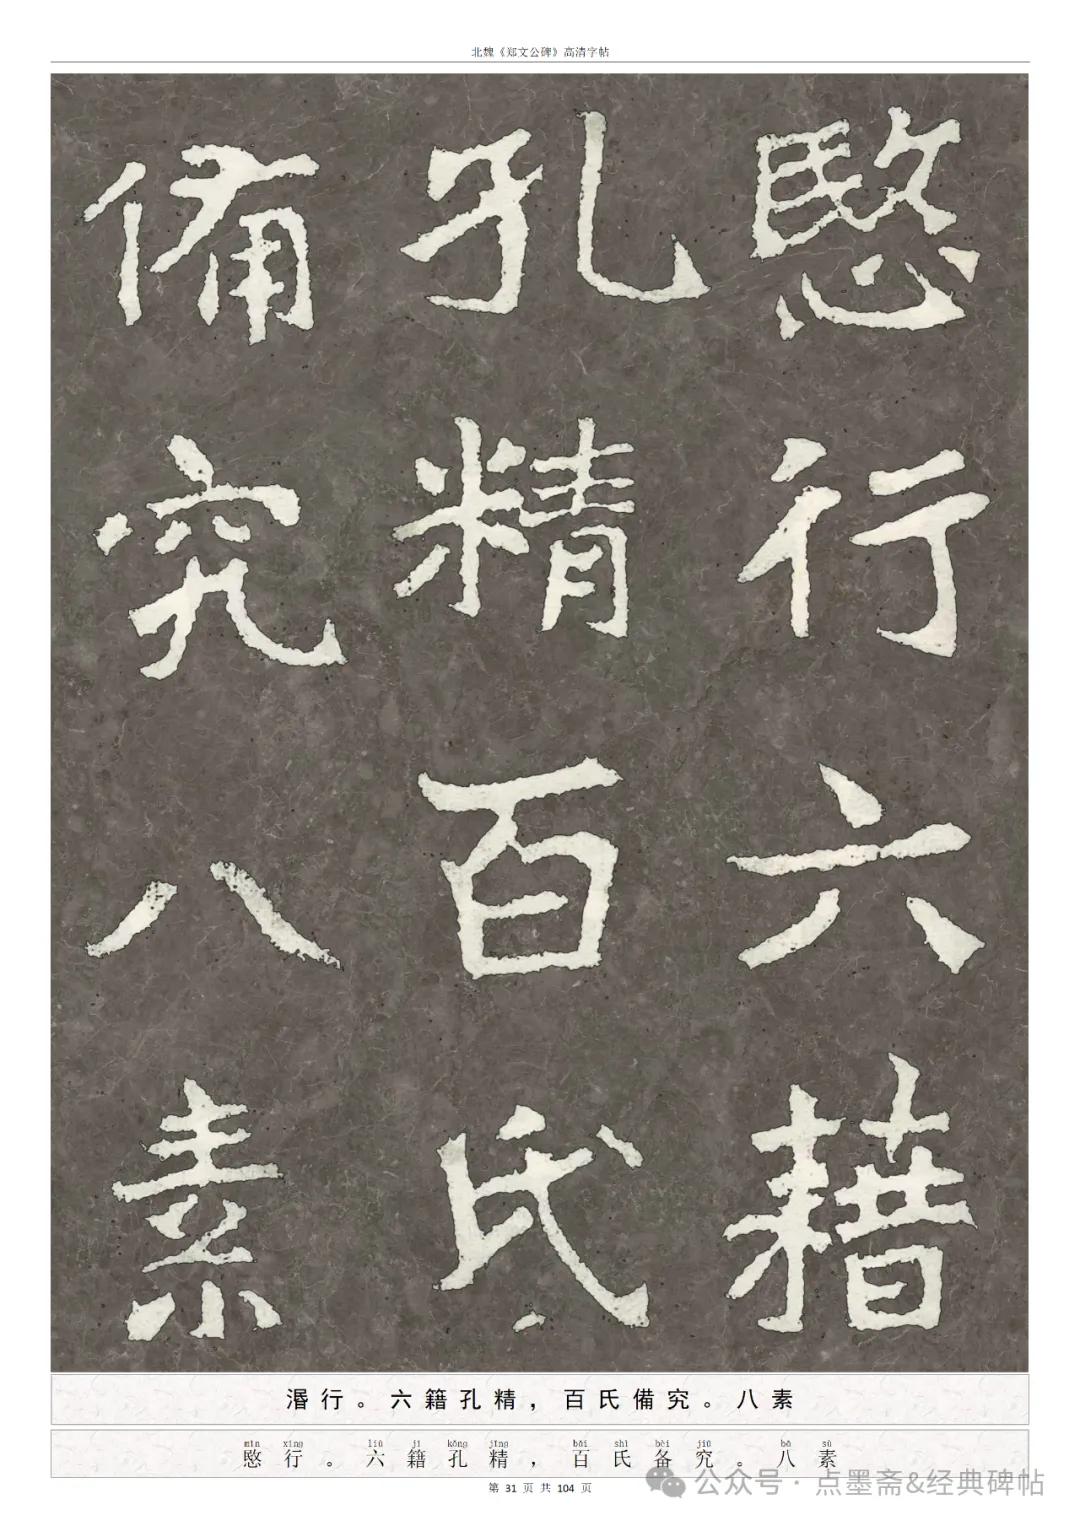 北魏《郑文公碑》高清字帖
愍行六藉
孔精百氏
備究八素
湣行。六籍孔精，百氏備究。八素
mǐn xíng liù jí kǒng jīng bǎi shì bèi jiū bā sù
愍行。六籍孔精，百氏备究。八素
第 31 页 共 104 页
公众号·点墨斋&经典碑帖